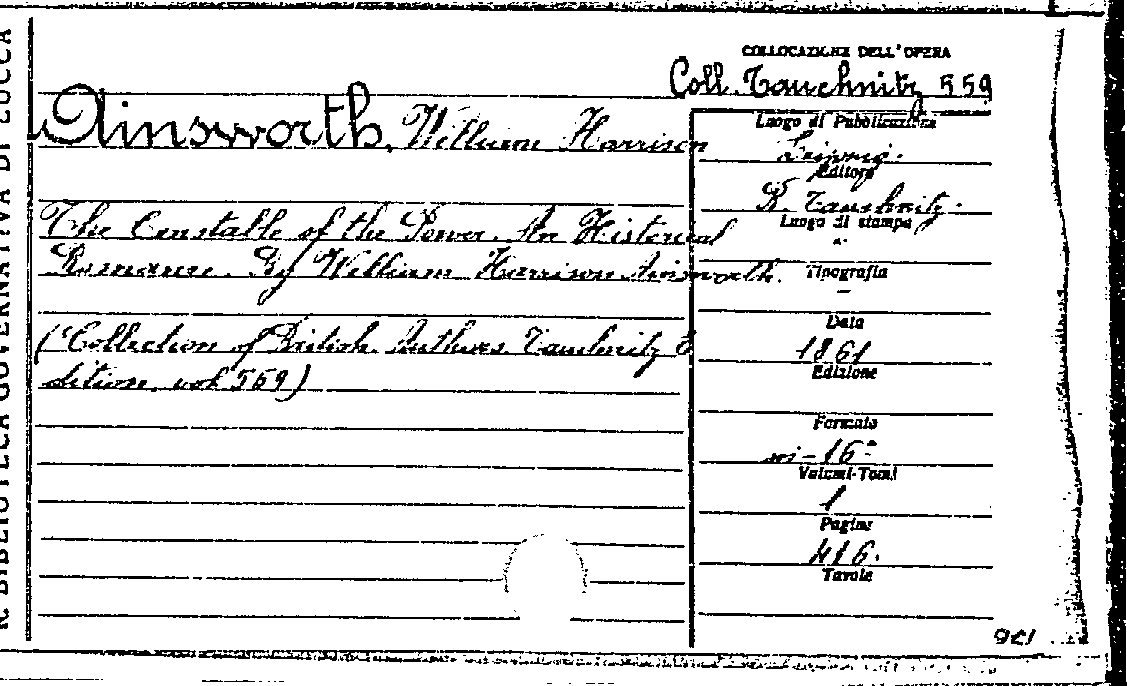 R. BIBLIOTECA GOVERNATIVA DI LUCCA
COLLOCAZIONE DELL'OPERA
Coll. Tauchnitz 559
Ainsworth, William Harrison
The Constable of the Tower. An Historical
Romance. By William Harrison Ainsworth.
(Collection of British Authors Tauchnitz E
dition vol 559)
Luogo di Pubblicazione
Leipzig.
Editore
B. Tauchnitz.
Luogo di stampa
"
Tipografia
–
Data
1861
Edizione
Formato
in-16°
Volumi-Tomi
1
Pagine
416.
Tavole